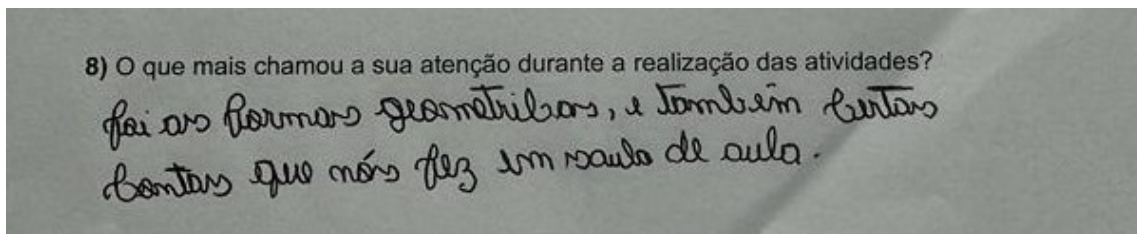 8) O que mais chamou a sua atenção durante a realização das atividades?
foi as formas geometricas, e também certas
contas que nós fez em saula de aula.